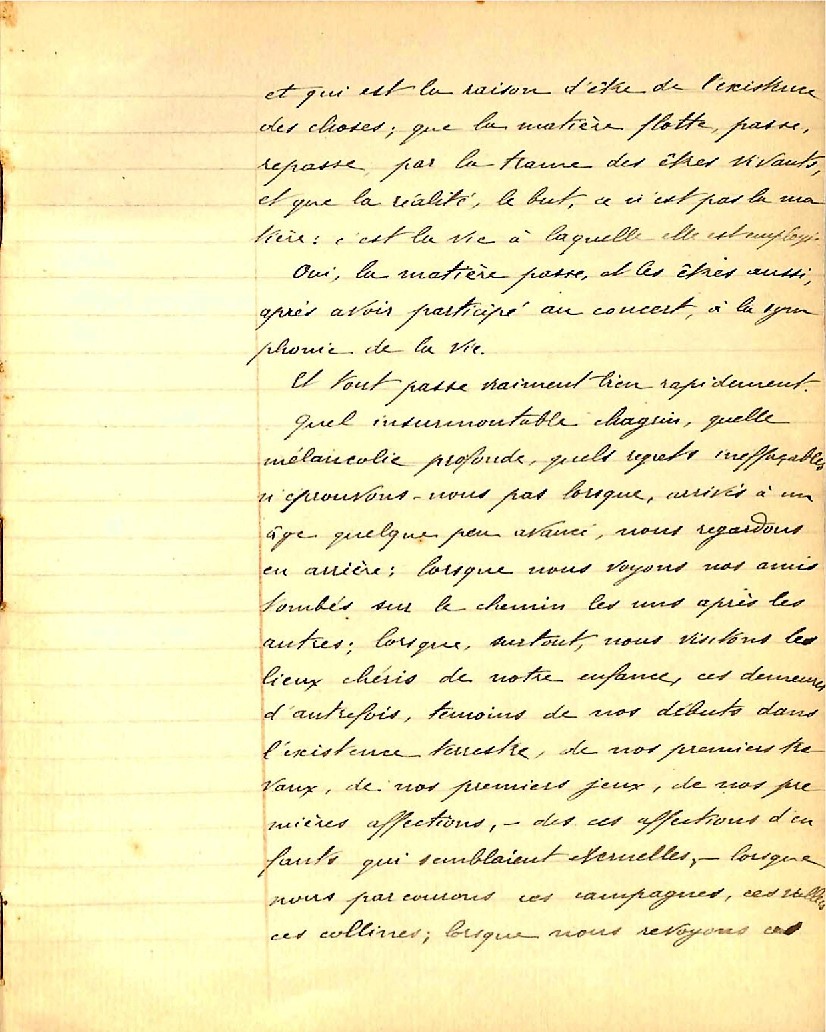 et qui est la raison d'être de l'existence
des choses; que la matière flotte, passe,
repasse, par la trame des êtres vivants,
et que la réalité, le but, ce n'est pas la ma
tière: c'est la vie à laquelle elle est employée.
Oui, la matière passe, et les êtres aussi,
après avoir participé au concert, à la sym
phonie de la vie.
Et tout passe vraiment bien rapidement.
Quel insurmontable chagrin, quelle
mélancolie profonde, quels regrets ineffaçables
n'éprouvons-nous pas lorsque, arrivés à un
âge quelque peu avancé, nous regardons
en arrière; lorsque nous voyons nos amis
tombés sur le chemin les uns après les
autres; lorsque, surtout, nous visitons les
lieux chéris de notre enfance, ces demeures
d'autrefois, témoins de nos débuts dans
l'existence terrestre, de nos premiers tra
vaux, de nos premiers jeux, de nos pre
mières affections, – des ces affections d'en
fants qui semblaient éternelles, – lorsque
nous parcourons ces campagnes, ces vallées
ces collines; lorsque nous revoyons ces